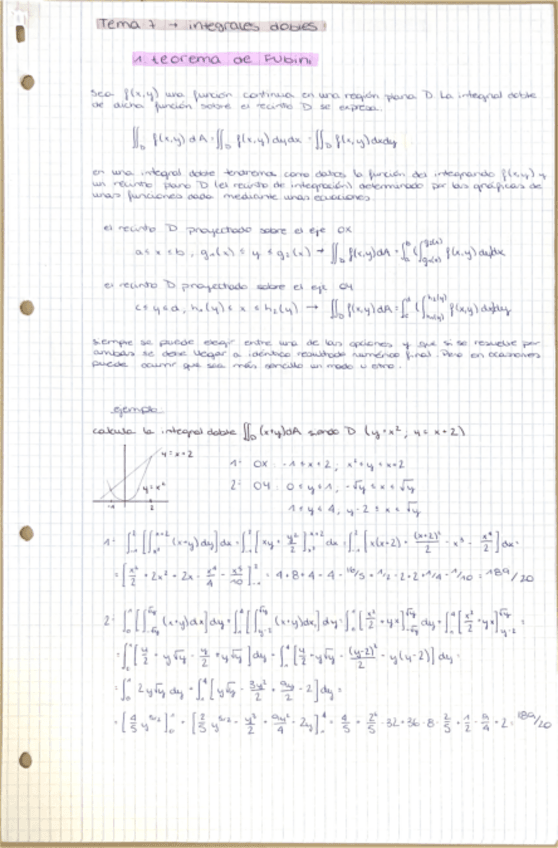 Tema 7 → integrales dobles
1 teorema de Fubini
sea f(x,y) una función continua en una región plana D la integral doble
de dicha función sobre el recinto D se expresa
∬_D f(x,y) dA = ∬_D f(x,y) dy dx = ∬_D f(x,y) dx dy
en una integral doble tendremos como datos la función del integrando f(x,y) y
un recinto plano D (el recinto de integración) determinado por las gráficas de
unas funciones dada mediante unas ecuaciones
el recinto D proyectado sobre el eje OX
a ≤ x ≤ b, g₁(x) ≤ y ≤ g₂(x) → ∬_D f(x,y) dA = ∫_a^b (∫_{g₁(x)}^{g₂(x)} f(x,y) dy) dx
el recinto D proyectado sobre el eje OY
c ≤ y ≤ d, h₁(y) ≤ x ≤ h₂(y) → ∬_D f(x,y) dA = ∫_c^d (∫_{h₁(y)}^{h₂(y)} f(x,y) dx) dy
siempre se puede elegir entre una de las opciones y que si se resuelve por
ambas se debe llegar a idéntico resultado numérico final. Pero en ocasiones
puede ocurrir que sea más sencillo un modo u otro.
ejemplo
calcula la integral doble ∬_D (x+y) dA siendo D (y = x², y = x+2)
y = x+2
y = x²
-1 2
1- OX: -1 ≤ x ≤ 2, x² ≤ y ≤ x+2
2- OY: 0 ≤ y ≤ 1, -√y ≤ x ≤ √y
1 ≤ y ≤ 4, y-2 ≤ x ≤ √y
1- ∫_{-1}^2 [∫_{x²}^{x+2} (x+y) dy] dx = ∫_{-1}^2 [xy + y²/2]_{x²}^{x+2} dx = ∫_{-1}^2 [x(x+2) + (x+2)²/2 - x³ - x⁴/2] dx =
2- ∫_0^1 [∫_{-√y}^{√y} (x+y) dx] dy + ∫_1^4 [∫_{y-2}^{√y} (x+y) dx] dy = ∫_0^1 [x²/2 + yx]_{-√y}^{√y} dy + ∫_1^4 [x²/2 + yx]_{y-2}^{√y} =
= ∫_0^1 [y/2 + y√y - y/2 + y√y] dy + ∫_1^4 [y/2 + y√y - (y-2)²/2 - y(y-2)] dy =
= ∫_0^1 2y√y dy + ∫_1^4 [y√y - 3y²/2 + 9y/2 - 2] dy =